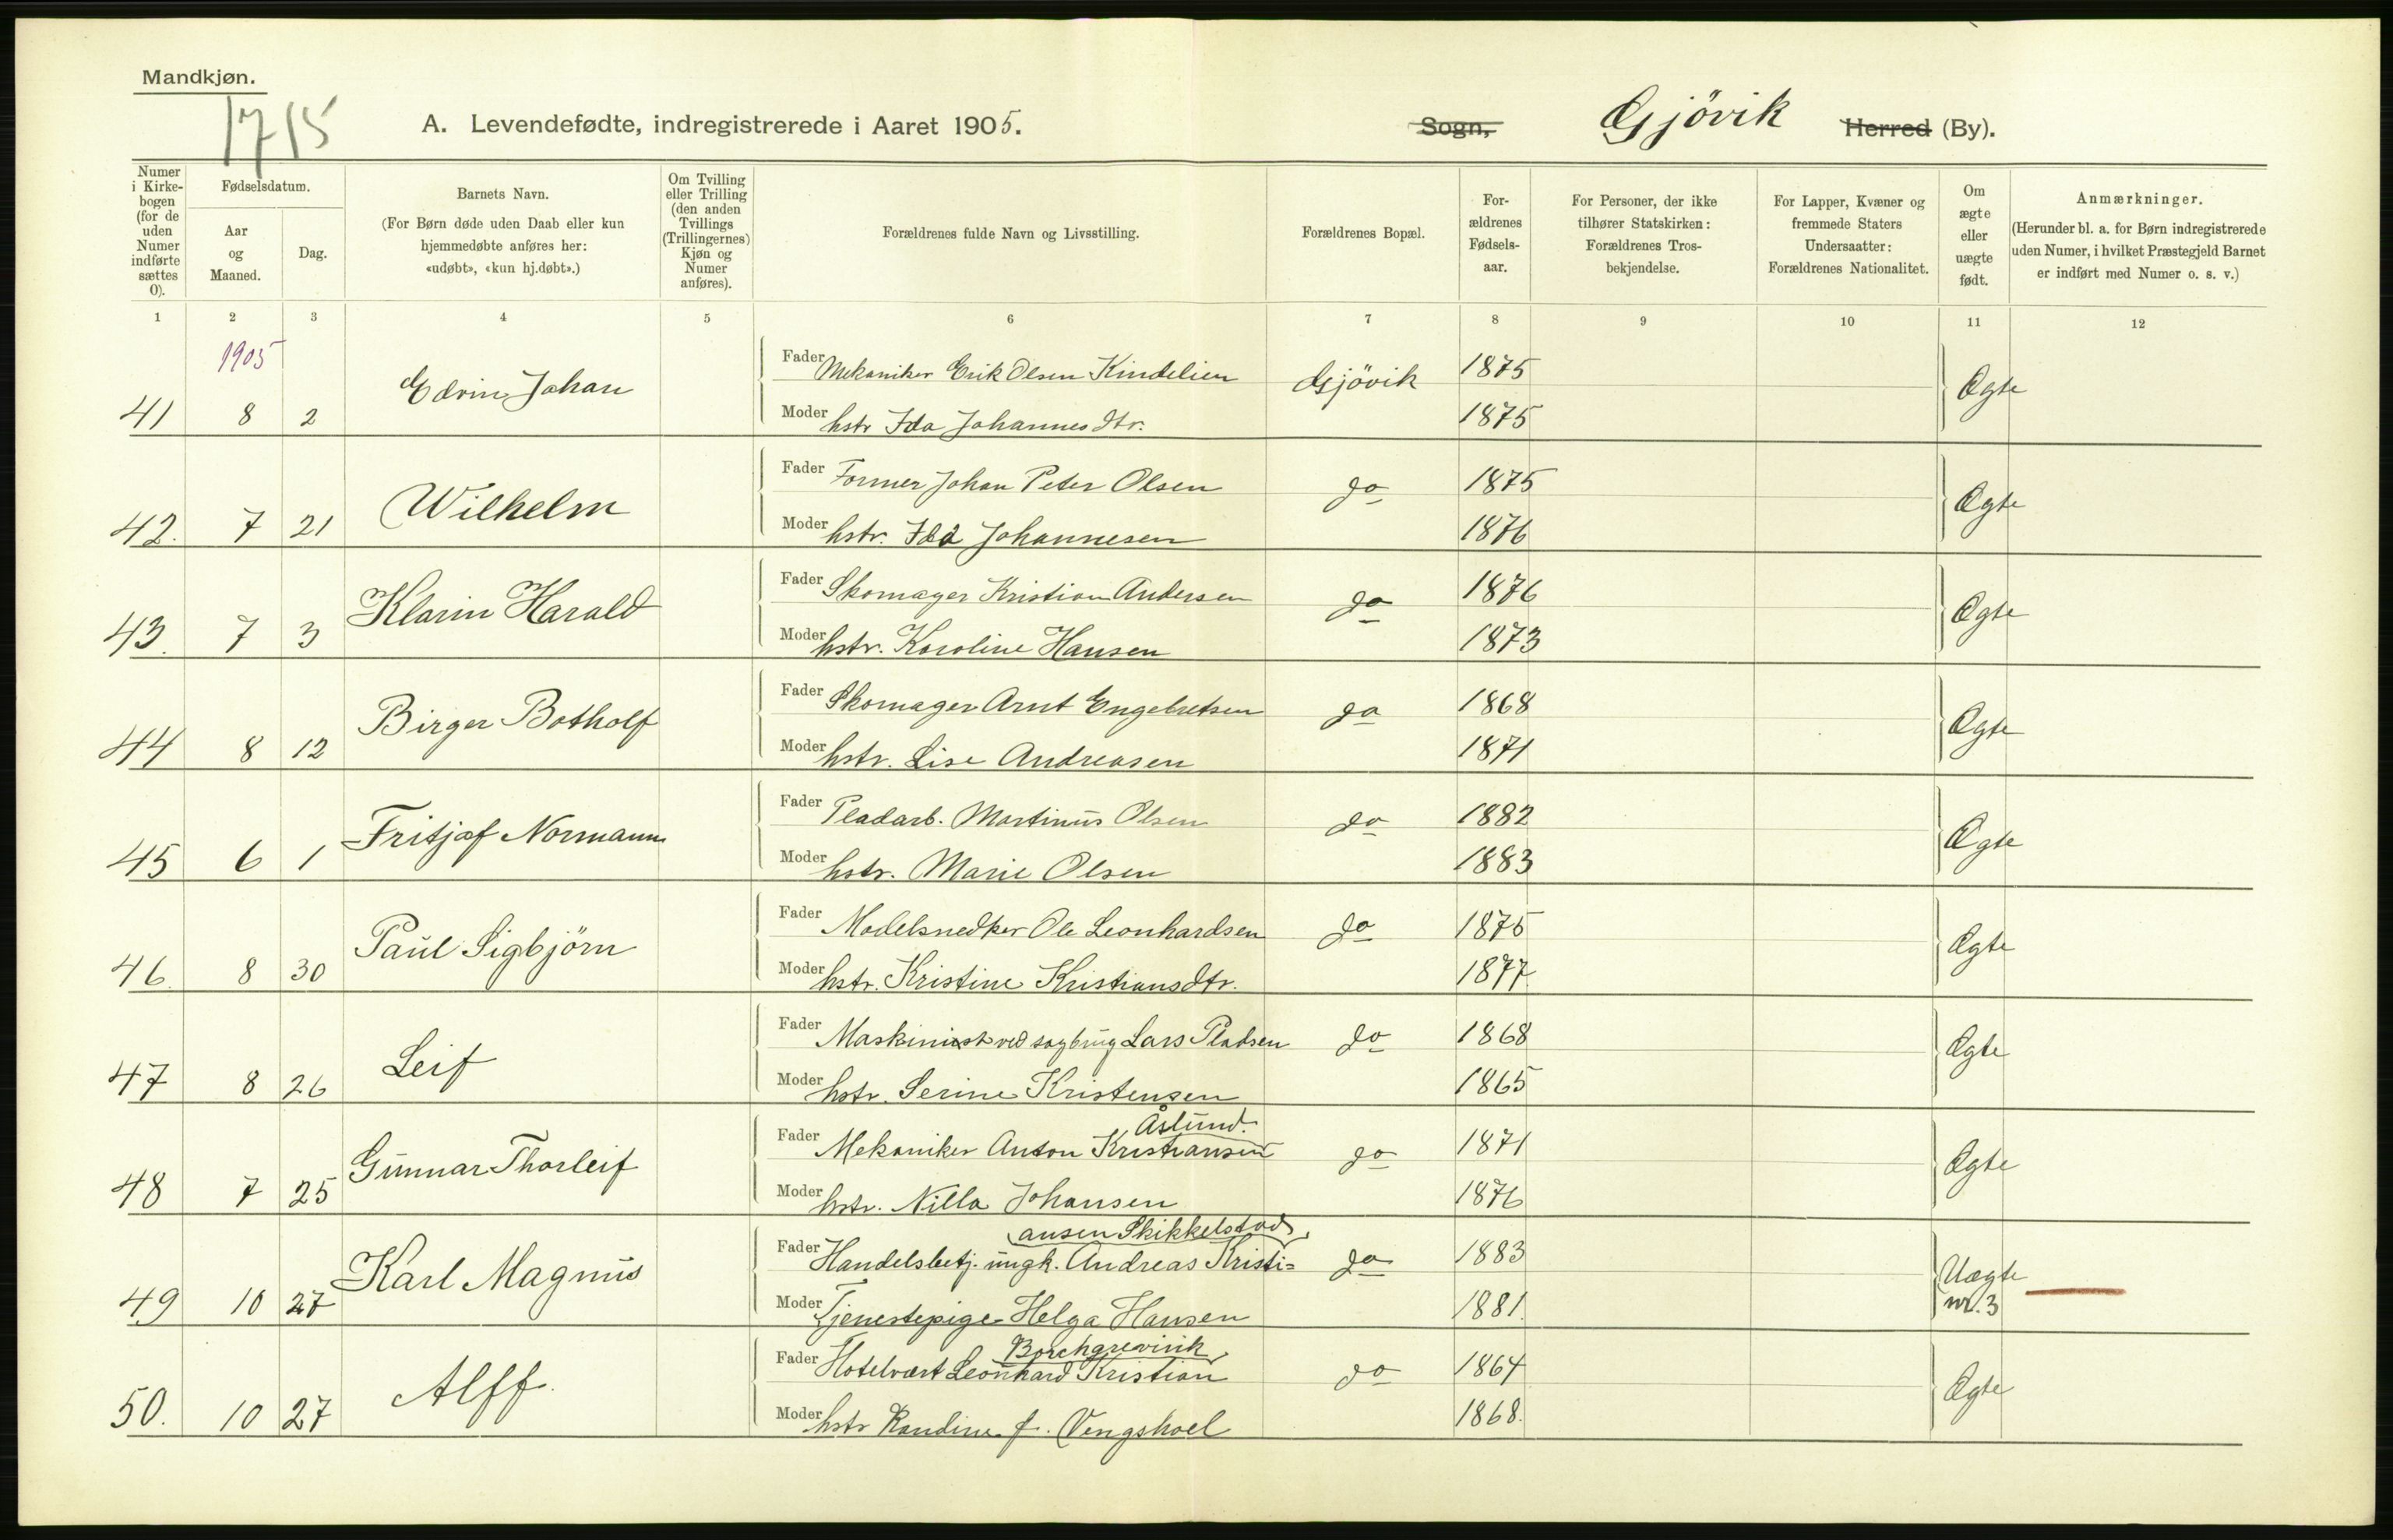 Mandkjøn.
1715
A. Levendefødte, indregistrerede i Aaret 1905.
Sogn, Gjövik Herred (By).
Numer i Kirkebogen (for de uden Numer indførte sættes 0).
Fødselsdatum.
Aar og Maaned.
Dag.
Barnets Navn.
(For Børn døde uden Daab eller kun hjemmedøbte anføres her: «udøbt», «kun hj.døbt».)
Om Tvilling eller Trilling (den anden Tvillings (Trillingernes) Kjøn og Numer anføres).
Forældrenes fulde Navn og Livsstilling.
Forældrenes Bopæl.
Forældrenes Fødselsaar.
For Personer, der ikke tilhører Statskirken: Forældrenes Trosbekjendelse.
For Lapper, Kvæner og fremmede Staters Undersaatter: Forældrenes Nationalitet.
Om ægte eller uægte født.
Anmærkninger.
(Herunder bl. a. for Børn indregistrerede uden Numer, i hvilket Præstegjeld Barnet er indført med Numer o. s. v.)
1 2 3 4 5 6 7 8 9 10 11 12
1905
41 8 2 Edvin Johan Fader Mekaniker Erik Olsen Kindelien Gjövik 1875 Ægte
Moder hstr Ida Johannesdtr. 1875
42. 7 21 Wilhelm Fader Former Johan Peter Olsen do 1875 Ægte
Moder hstr. Ida Johannesen 1876
43. 7 3 Klarin Harald Fader Skomager Kristian Andersen do 1876 Ægte
Moder hstr. Karoline Hansen 1873
44 8 12 Birger Botholf Fader Skomager Arnt Engebretsen do 1868 Ægte
Moder hstr. Lise Andreasen 1871
45 6 1 Fritjof Normann Fader Pladarb. Martinus Olsen do 1882 Ægte
Moder hstr. Marie Olsen 1883
46. 8 30 Paul Sigbjörn Fader Modelsnedker Ole Leonhardsen do 1875 Ægte
Moder hstr. Kristine Kristiansdtr. 1877
47 8 26 Leif Fader Maskinist ved sagbrug Lars Pladsen do 1868 Ægte
Moder hstr. Serine Kristensen 1865
Åslund.
48 7 25 Gunnar Thorleif Fader Mekaniker Anton Kristiansen do 1871 Ægte
Moder hstr. Nilla Johansen 1876
ansen Skikkelstad,
49 10 27 Karl Magnus Fader Handelsbetj. ungk. Andreas Kristi= do 1883 Uægte
Moder Tjenestepige Helga Hansen 1881. nr. 3
Borchgrevink,
50. 10 27 Alff. Fader Hotelvært Leonhard Kristian do 1864 Ægte
Moder hstr Randine f. Vengshoel 1868.